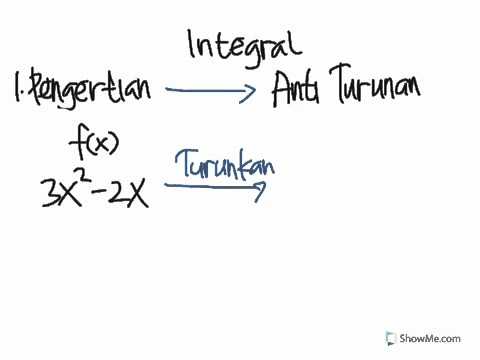 Integral
1. Pengertian → Anti Turunan
f(x)
3x² - 2x Turunkan →
ShowMe.com